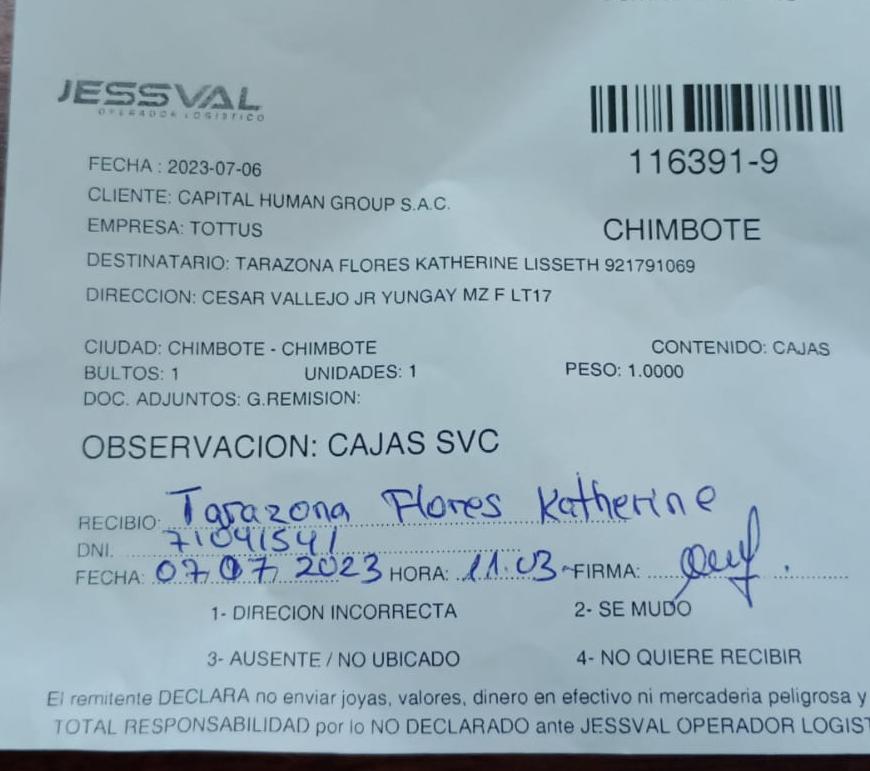 JESSVAL
OPERADOR LOGISTICO
116391-9
FECHA : 2023-07-06
CLIENTE: CAPITAL HUMAN GROUP S.A.C.
EMPRESA: TOTTUS
CHIMBOTE
DESTINATARIO: TARAZONA FLORES KATHERINE LISSETH 921791069
DIRECCION: CESAR VALLEJO JR YUNGAY MZ F LT17
CIUDAD: CHIMBOTE - CHIMBOTE CONTENIDO: CAJAS
BULTOS: 1 UNIDADES: 1 PESO: 1.0000
DOC. ADJUNTOS: G.REMISION:
OBSERVACION: CAJAS SVC
RECIBIO: Tarazona Flores Katherine
DNI. 71041541
FECHA: 07 07 2023 HORA: 11:03 FIRMA:
1- DIRECION INCORRECTA 2- SE MUDO
3- AUSENTE / NO UBICADO 4- NO QUIERE RECIBIR
El remitente DECLARA no enviar joyas, valores, dinero en efectivo ni mercaderia peligrosa y
TOTAL RESPONSABILIDAD por lo NO DECLARADO ante JESSVAL OPERADOR LOGIST